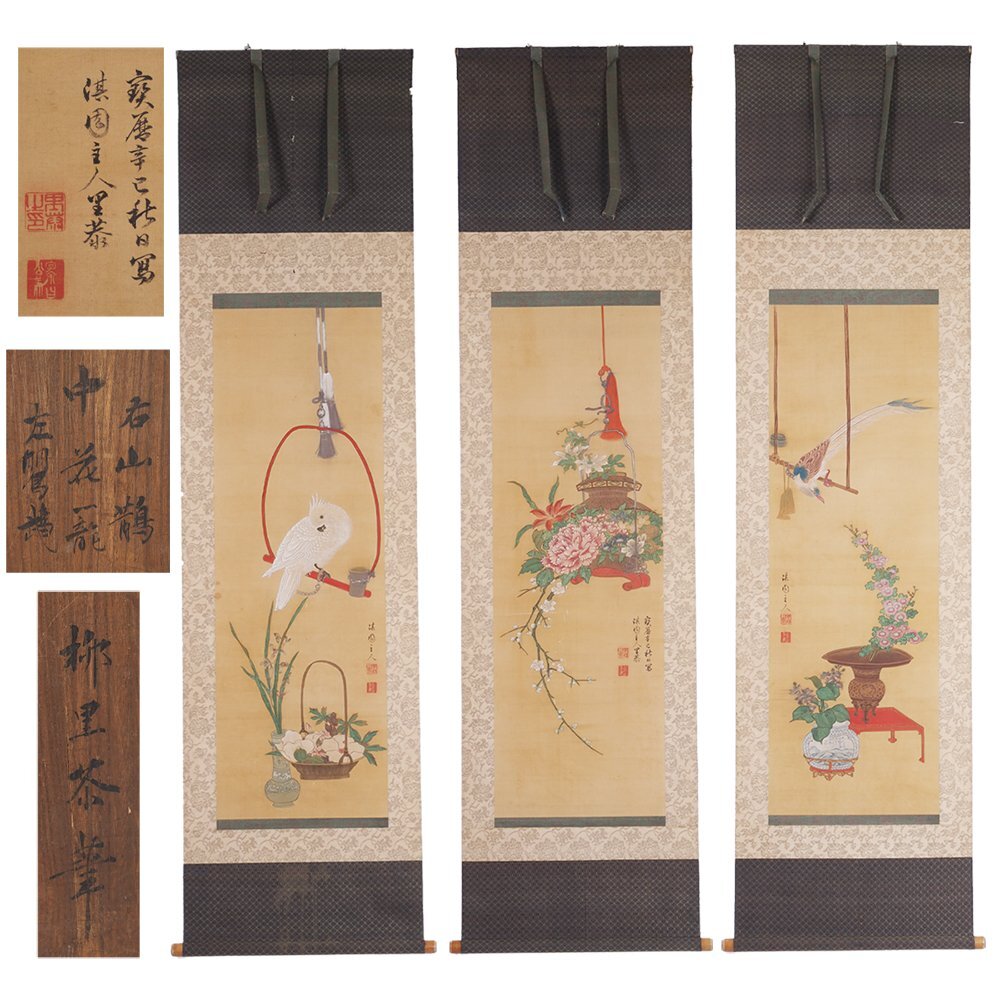 寳暦辛巳秋日寫
淇園主人里恭
右山鵲
中花籠
左鸚鵡
柳里恭筆
淇園主人
寳暦辛巳秋日寫
淇園主人里恭
淇園主人